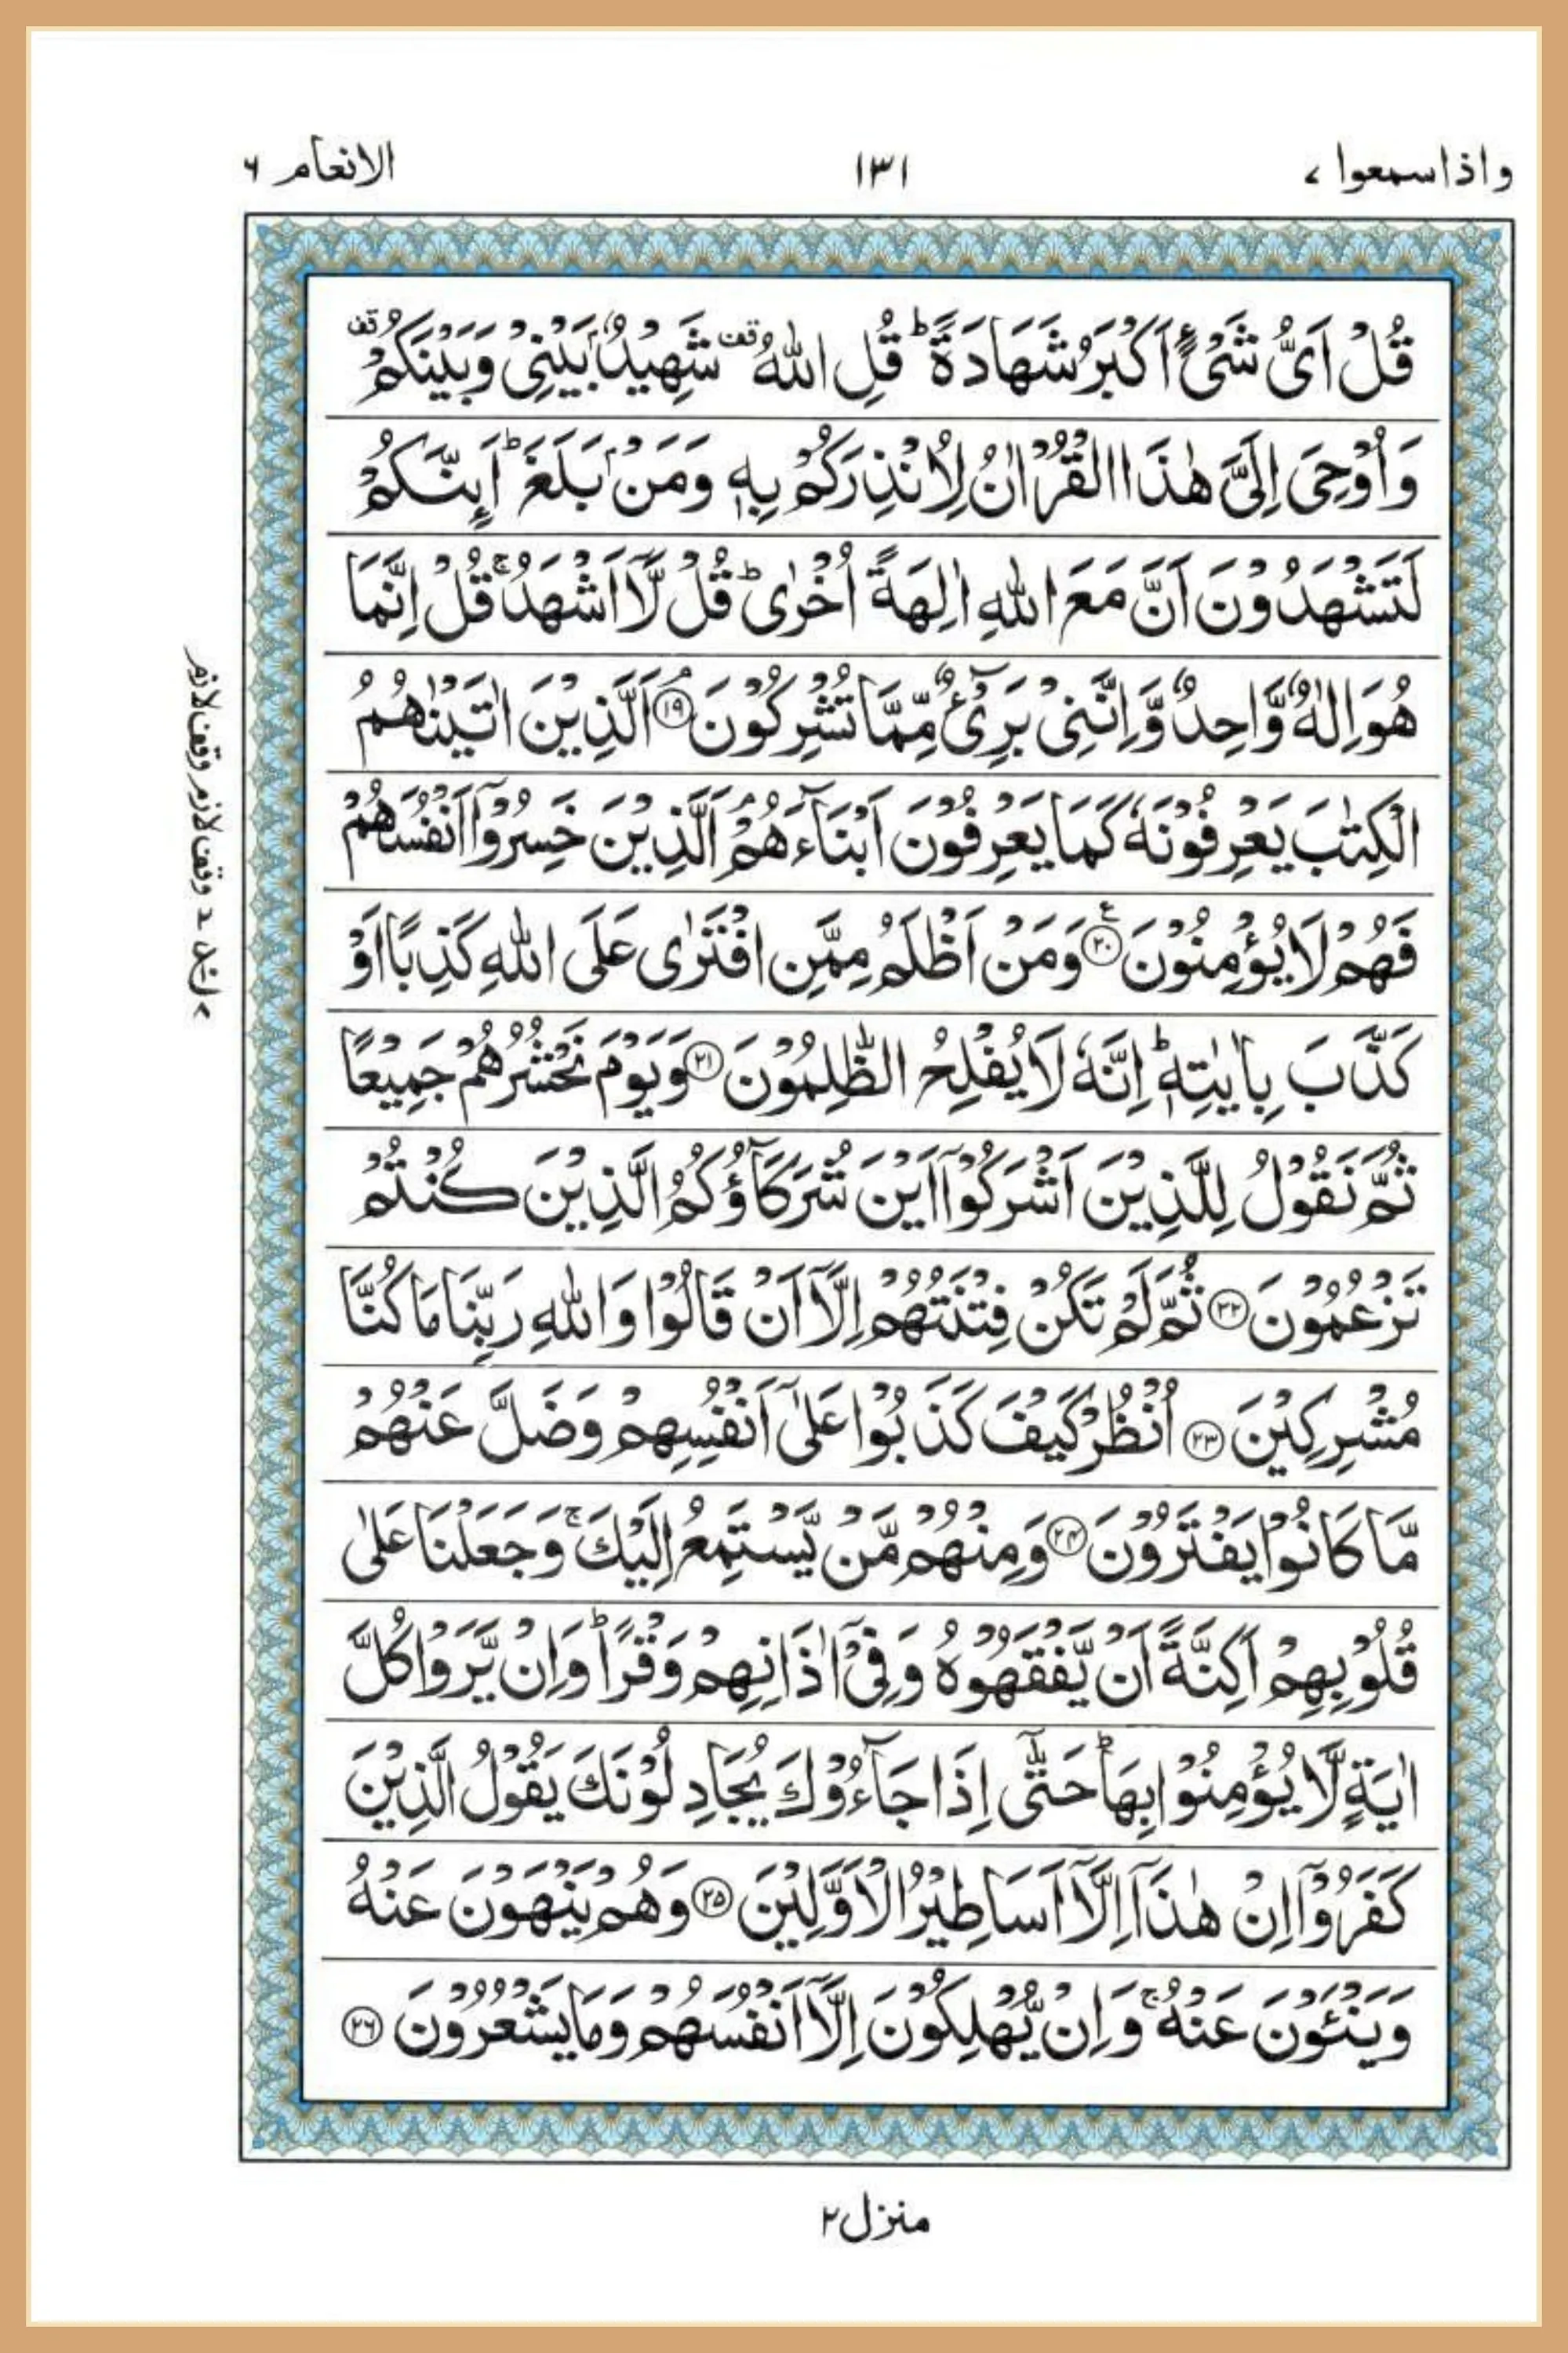 واذاسمعوا ٧
١٣١
الانعام ٦
قُلْ اَيُّ شَيْءٍ اَكْبَرُ شَهَادَةً ؕ قُلِ اللّٰهُ قف شَهِيْدٌۢ بَيْنِيْ وَبَيْنَكُمْ قف
وَاُوْحِيَ اِلَيَّ هٰذَا الْقُرْاٰنُ لِاُنْذِرَكُمْ بِهٖ وَمَنْۢ بَلَغَ ؕ اَئِنَّكُمْ
لَتَشْهَدُوْنَ اَنَّ مَعَ اللّٰهِ اٰلِهَةً اُخْرٰى ؕ قُلْ لَّاۤ اَشْهَدُ ۚ قُلْ اِنَّمَا
هُوَ اِلٰهٌ وَّاحِدٌ وَّاِنَّنِيْ بَرِيْٓءٌ مِّمَّا تُشْرِكُوْنَ ۘ ﴿۱۹﴾ اَلَّذِيْنَ اٰتَيْنٰهُمُ
الْكِتٰبَ يَعْرِفُوْنَهٗ كَمَا يَعْرِفُوْنَ اَبْنَآءَهُمْ ۘ اَلَّذِيْنَ خَسِرُوْۤا اَنْفُسَهُمْ
فَهُمْ لَا يُؤْمِنُوْنَ ع ﴿۲۰﴾ وَمَنْ اَظْلَمُ مِمَّنِ افْتَرٰى عَلَى اللّٰهِ كَذِبًا اَوْ
كَذَّبَ بِاٰيٰتِهٖ ؕ اِنَّهٗ لَا يُفْلِحُ الظّٰلِمُوْنَ ﴿۲۱﴾ وَيَوْمَ نَحْشُرُهُمْ جَمِيْعًا
ثُمَّ نَقُوْلُ لِلَّذِيْنَ اَشْرَكُوْۤا اَيْنَ شُرَكَآؤُكُمُ الَّذِيْنَ كُنْتُمْ
تَزْعُمُوْنَ ﴿۲۲﴾ ثُمَّ لَمْ تَكُنْ فِتْنَتُهُمْ اِلَّاۤ اَنْ قَالُوْا وَاللّٰهِ رَبِّنَا مَا كُنَّا
مُشْرِكِيْنَ ﴿۲۳﴾ اُنْظُرْ كَيْفَ كَذَبُوْا عَلٰۤى اَنْفُسِهِمْ وَضَلَّ عَنْهُمْ
مَّا كَانُوْا يَفْتَرُوْنَ ﴿۲۴﴾ وَمِنْهُمْ مَّنْ يَّسْتَمِعُ اِلَيْكَ ۚ وَجَعَلْنَا عَلٰى
قُلُوْبِهِمْ اَكِنَّةً اَنْ يَّفْقَهُوْهُ وَفِيْۤ اٰذَانِهِمْ وَقْرًا ؕ وَاِنْ يَّرَوْا كُلَّ
اٰيَةٍ لَّا يُؤْمِنُوْا بِهَا ؕ حَتّٰۤى اِذَا جَآءُوْكَ يُجَادِلُوْنَكَ يَقُوْلُ الَّذِيْنَ
كَفَرُوْۤا اِنْ هٰذَاۤ اِلَّاۤ اَسَاطِيْرُ الْاَوَّلِيْنَ ﴿۲۵﴾ وَهُمْ يَنْهَوْنَ عَنْهُ
وَيَنْـَٔوْنَ عَنْهُ ۚ وَاِنْ يُّهْلِكُوْنَ اِلَّاۤ اَنْفُسَهُمْ وَمَا يَشْعُرُوْنَ ﴿۲۶﴾
وقف لازم وقف لازم
منزل ٢